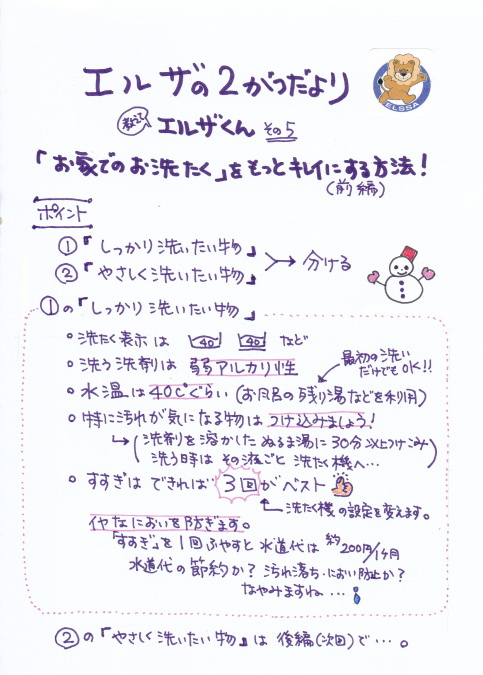 エルザの2がつだより
ELSSA
教えて エルザくん その5
「お家でのお洗たく」をもっとキレイにする方法!
(前編)
ポイント
①『しっかり洗いたい物』
②『やさしく洗いたい物』
分ける
①の『しっかり洗いたい物』
○洗たく表示は 40 40 など
○洗う洗剤は 弱アルカリ性
最初の洗い
だけでもOK!!
○水温は40℃ぐらい(お風呂の残り湯などを利用)
○特に汚れが気になる物はつけ込みましょう!
(洗剤を溶かしたぬるま湯に30分以上つけこみ
洗う時はその液ごと洗たく機へ…)
○すすぎは できれば 3回がベスト
洗たく機の設定を変えます。
イヤなにおいを防ぎます。
「すすぎ」を1回ふやすと水道代は約200円/1ヶ月
水道代の節約か?汚れ落ち・におい防止か?
なやみますね…
②の『やさしく洗いたい物』は後編(次回)で…。